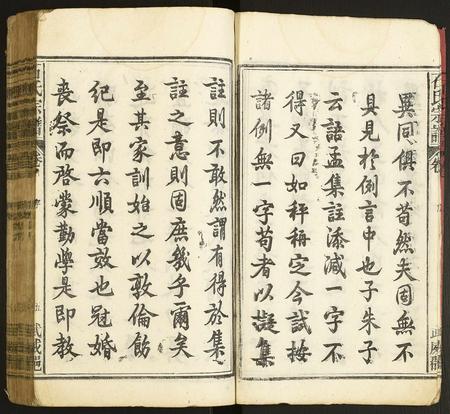 異同俱不苟然夫固無不
具見於例言中也子朱子
云語孟集註添減一字不
得又曰如秤稱定今試按
諸例無一字苟者以擬集
註則不敢然謂有得於集
註之意則固庶幾乎爾矣
至其家訓始之以敦倫飭
紀是即六順當效也冠婚
喪祭而啓蒙勤學是即教
氏宗譜
五
武威